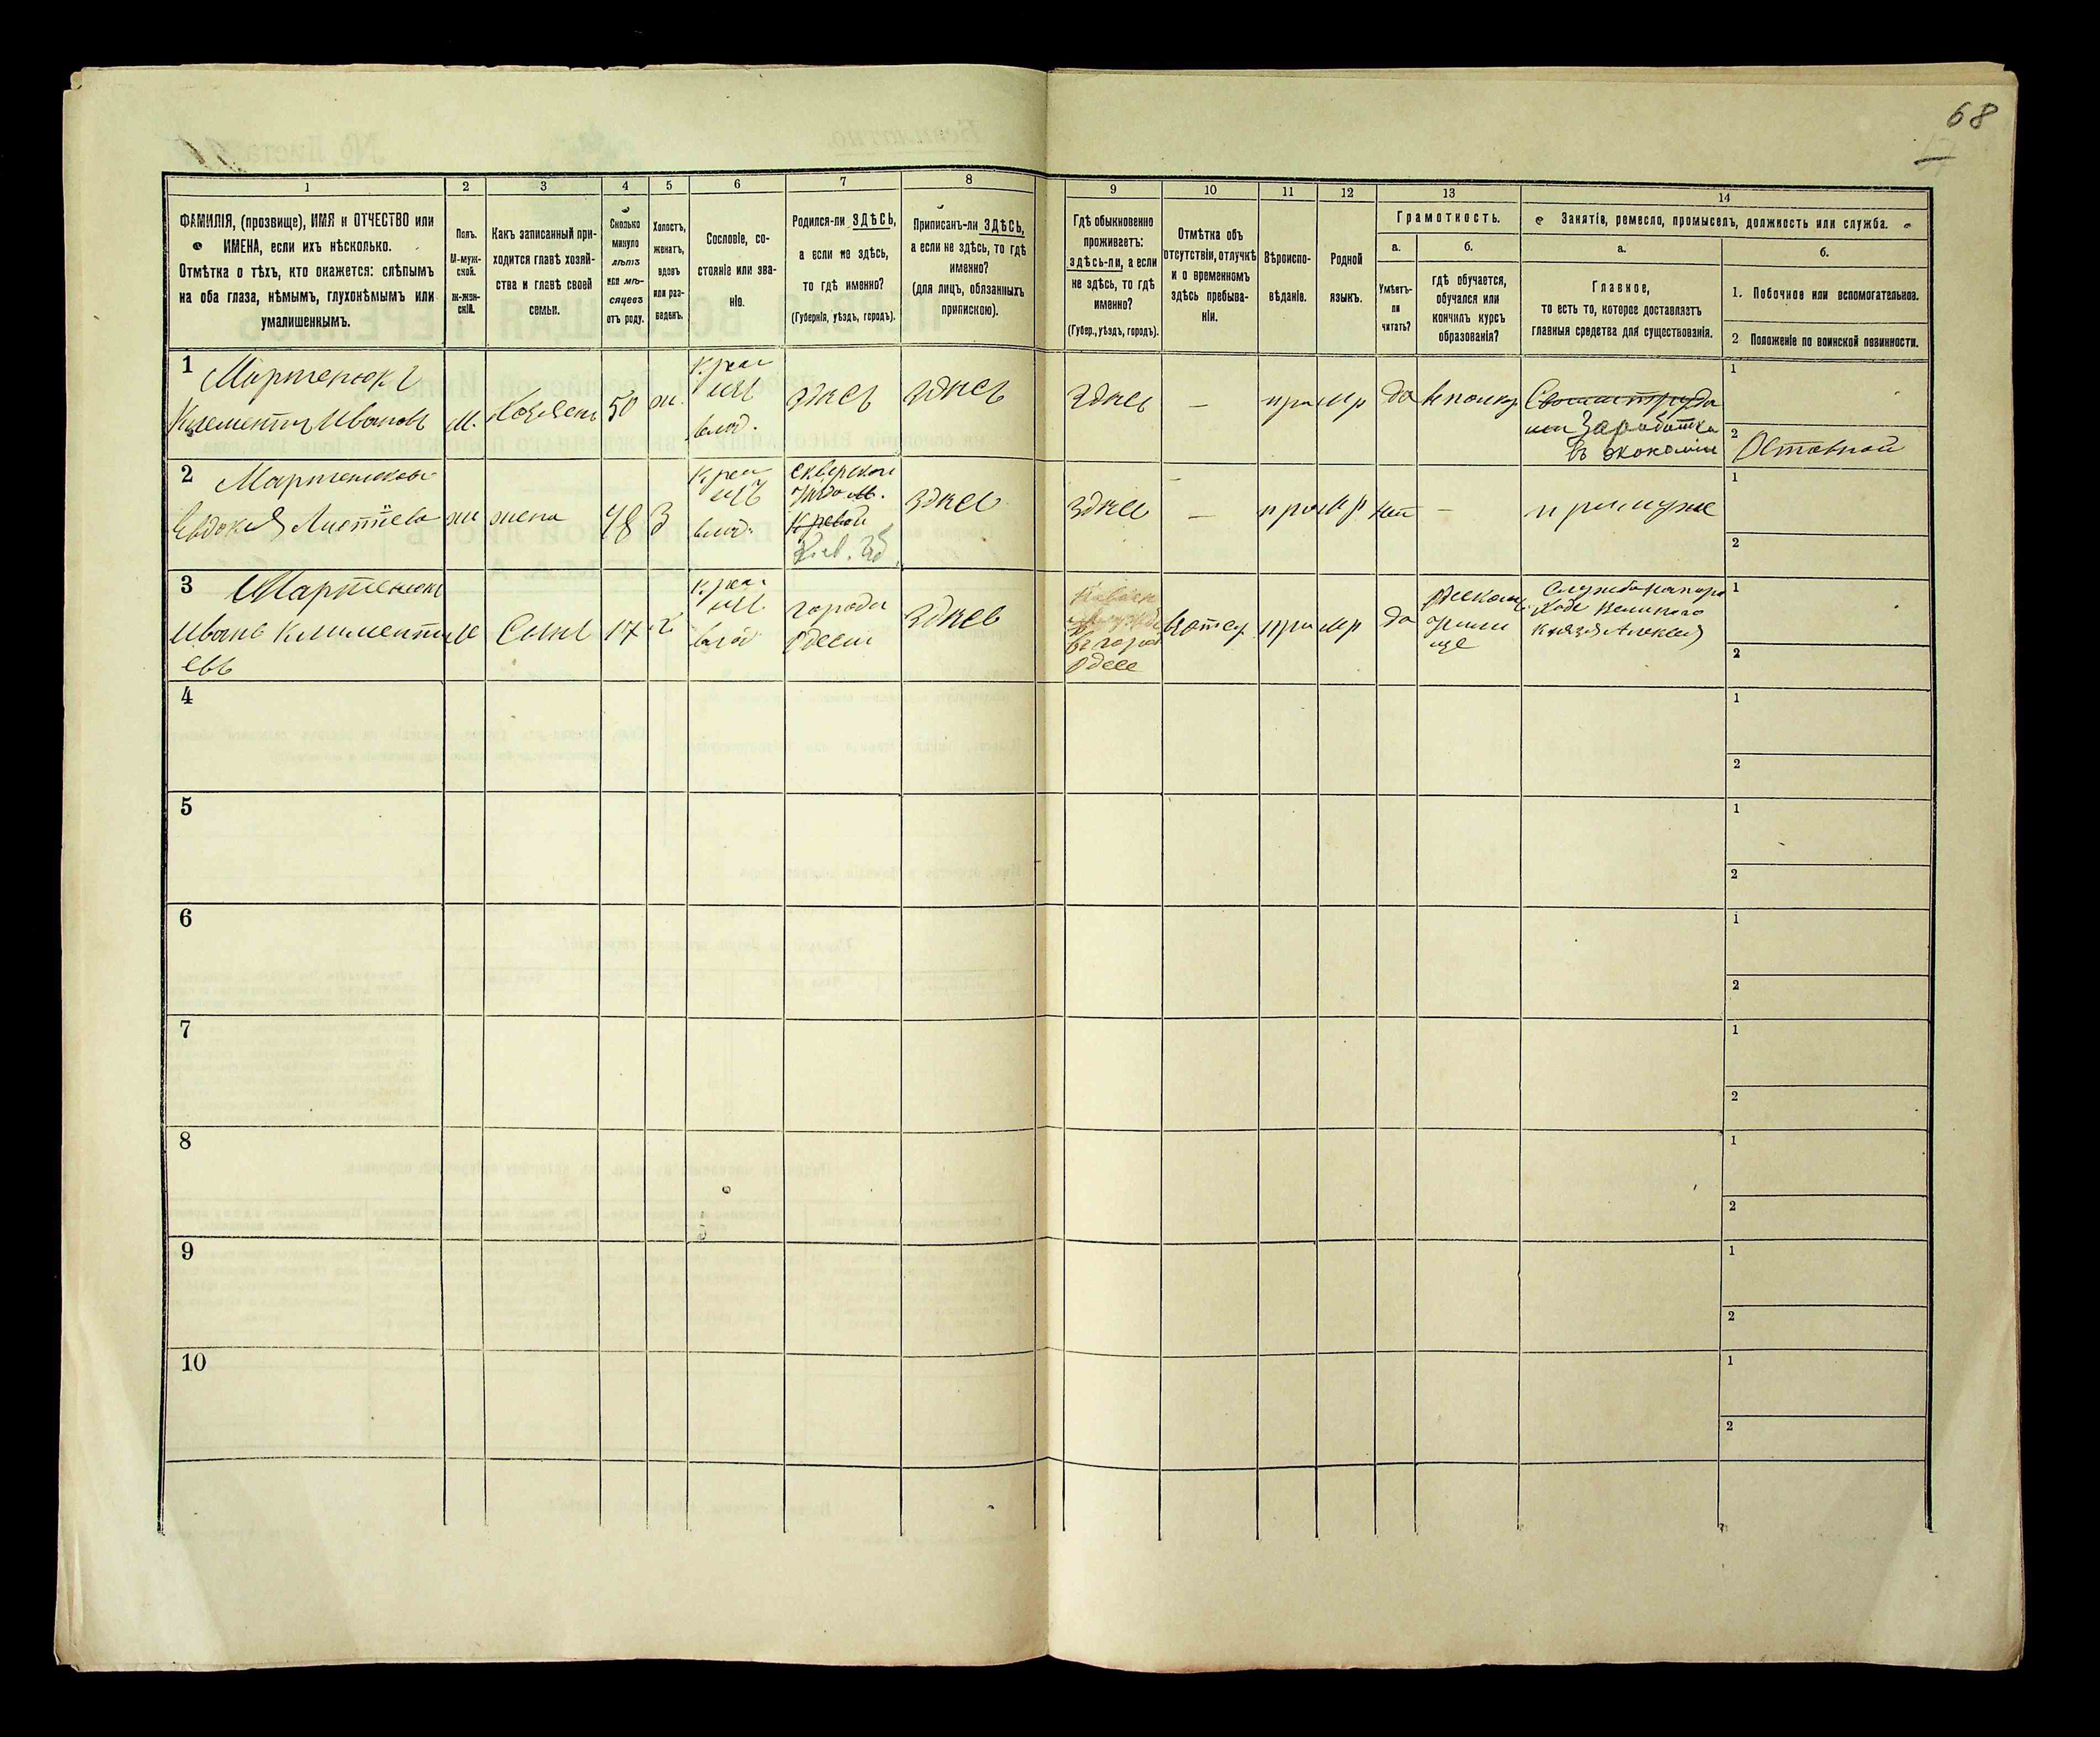 68
1
2
3
4
5
6
7
8
9
10
11
12
13
14
ФАМИЛІЯ, (прозвище), ИМЯ и ОТЧЕСТВО или
ИМЕНА, если ихъ нѣсколько.
Отмѣтка о тѣхъ, кто окажется: слѣпымъ
на оба глаза, нѣмымъ, глухонѣмымъ или
умалишеннымъ.
Полъ.
М-муж-
ской.
ж-жен-
скій.
Какъ записанный при-
ходится главѣ хозяй-
ства и главѣ своей
семьи.
Сколько
минуло
лѣтъ
или мѣ-
сяцевъ
отъ роду.
Холостъ,
женатъ,
вдовъ
или раз-
веденъ.
Сословіе, со-
стояніе или зва-
ніе.
Родился-ли ЗДѢСЬ,
а если не здѣсь,
то гдѣ именно?
(Губернія, уѣздъ, городъ).
Приписанъ-ли ЗДѢСЬ,
а если не здѣсь, то гдѣ
именно?
(для лицъ, обязанныхъ
припискою).
Гдѣ обыкновенно
проживаетъ:
здѣсь-ли, а если
не здѣсь, то гдѣ
именно?
(Губер., уѣздъ, городъ).
Отмѣтка объ
отсутствіи, отлучкѣ
и о временномъ
здѣсь пребыва-
ніи.
Вѣроиспо-
вѣданіе.
Родной
языкъ.
Грамотность.
а.
Умѣетъ-
ли
читать?
б.
гдѣ обучается,
обучался или
кончилъ курсъ
образованія?
Занятіе, ремесло, промыселъ, должность или служба.
а.
Главное,
то есть то, которое доставляетъ
главныя средства для существованія.
б.
1. Побочное или вспомогательное.
2 Положеніе по воинской повинности.
1
Мартенюкъ
Климентій Ивановъ
м.
Хозяинъ
50
ж.
влад.
здѣсь
здѣсь
здѣсь
—
да
Заработки
въ экономіи
1
2
Отставной
2
Евдокія
ж
жена
48
З
влад.
Кіев. Губ.
здѣсь
здѣсь
—
—
при мужѣ
1
2
3
Мартенюкъ
Иванъ Климентіевъ
м
Сынъ
17
х
влад
города
Одессы
здѣсь
въ город
Одессе
да
учили
ще
Служба на паро
ходе Великаго
Князя Алексея
1
2
4
1
2
5
1
2
6
1
2
7
1
2
8
1
2
9
1
2
10
1
2